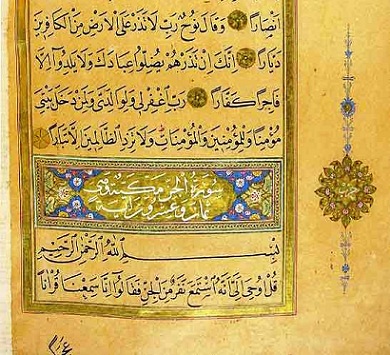 اَنْصَاراً وَقَالَ نُوحٌ رَبِّ لَا تَذَرْ عَلَى الْاَرْضِ مِنَ الْكَافِرِينَ
دَيَّاراً اِنَّكَ اِنْ تَذَرْهُمْ يُضِلُّوا عِبَادَكَ وَلَا يَلِدُوا اِلَّا
فَاجِراً كَفَّاراً رَبِّ اغْفِرْ لِي وَلِوَالِدَيَّ وَلِمَنْ دَخَلَ بَيْتِيَ
مُؤْمِناً وَلِلْمُؤْمِنِينَ وَالْمُؤْمِنَاتِ وَلَا تَزِدِ الظَّالِمِينَ اِلَّا تَبَاراً
سورة الجن مكية وهي
ثمان وعشرون اية
بِسْمِ اللهِ الرَّحْمٰنِ الرَّحِيمِ
قُلْ اُوحِيَ اِلَيَّ اَنَّهُ اسْتَمَعَ نَفَرٌ مِنَ الْجِنِّ فَقَالُوا اِنَّا سَمِعْنَا قُرْاٰناً